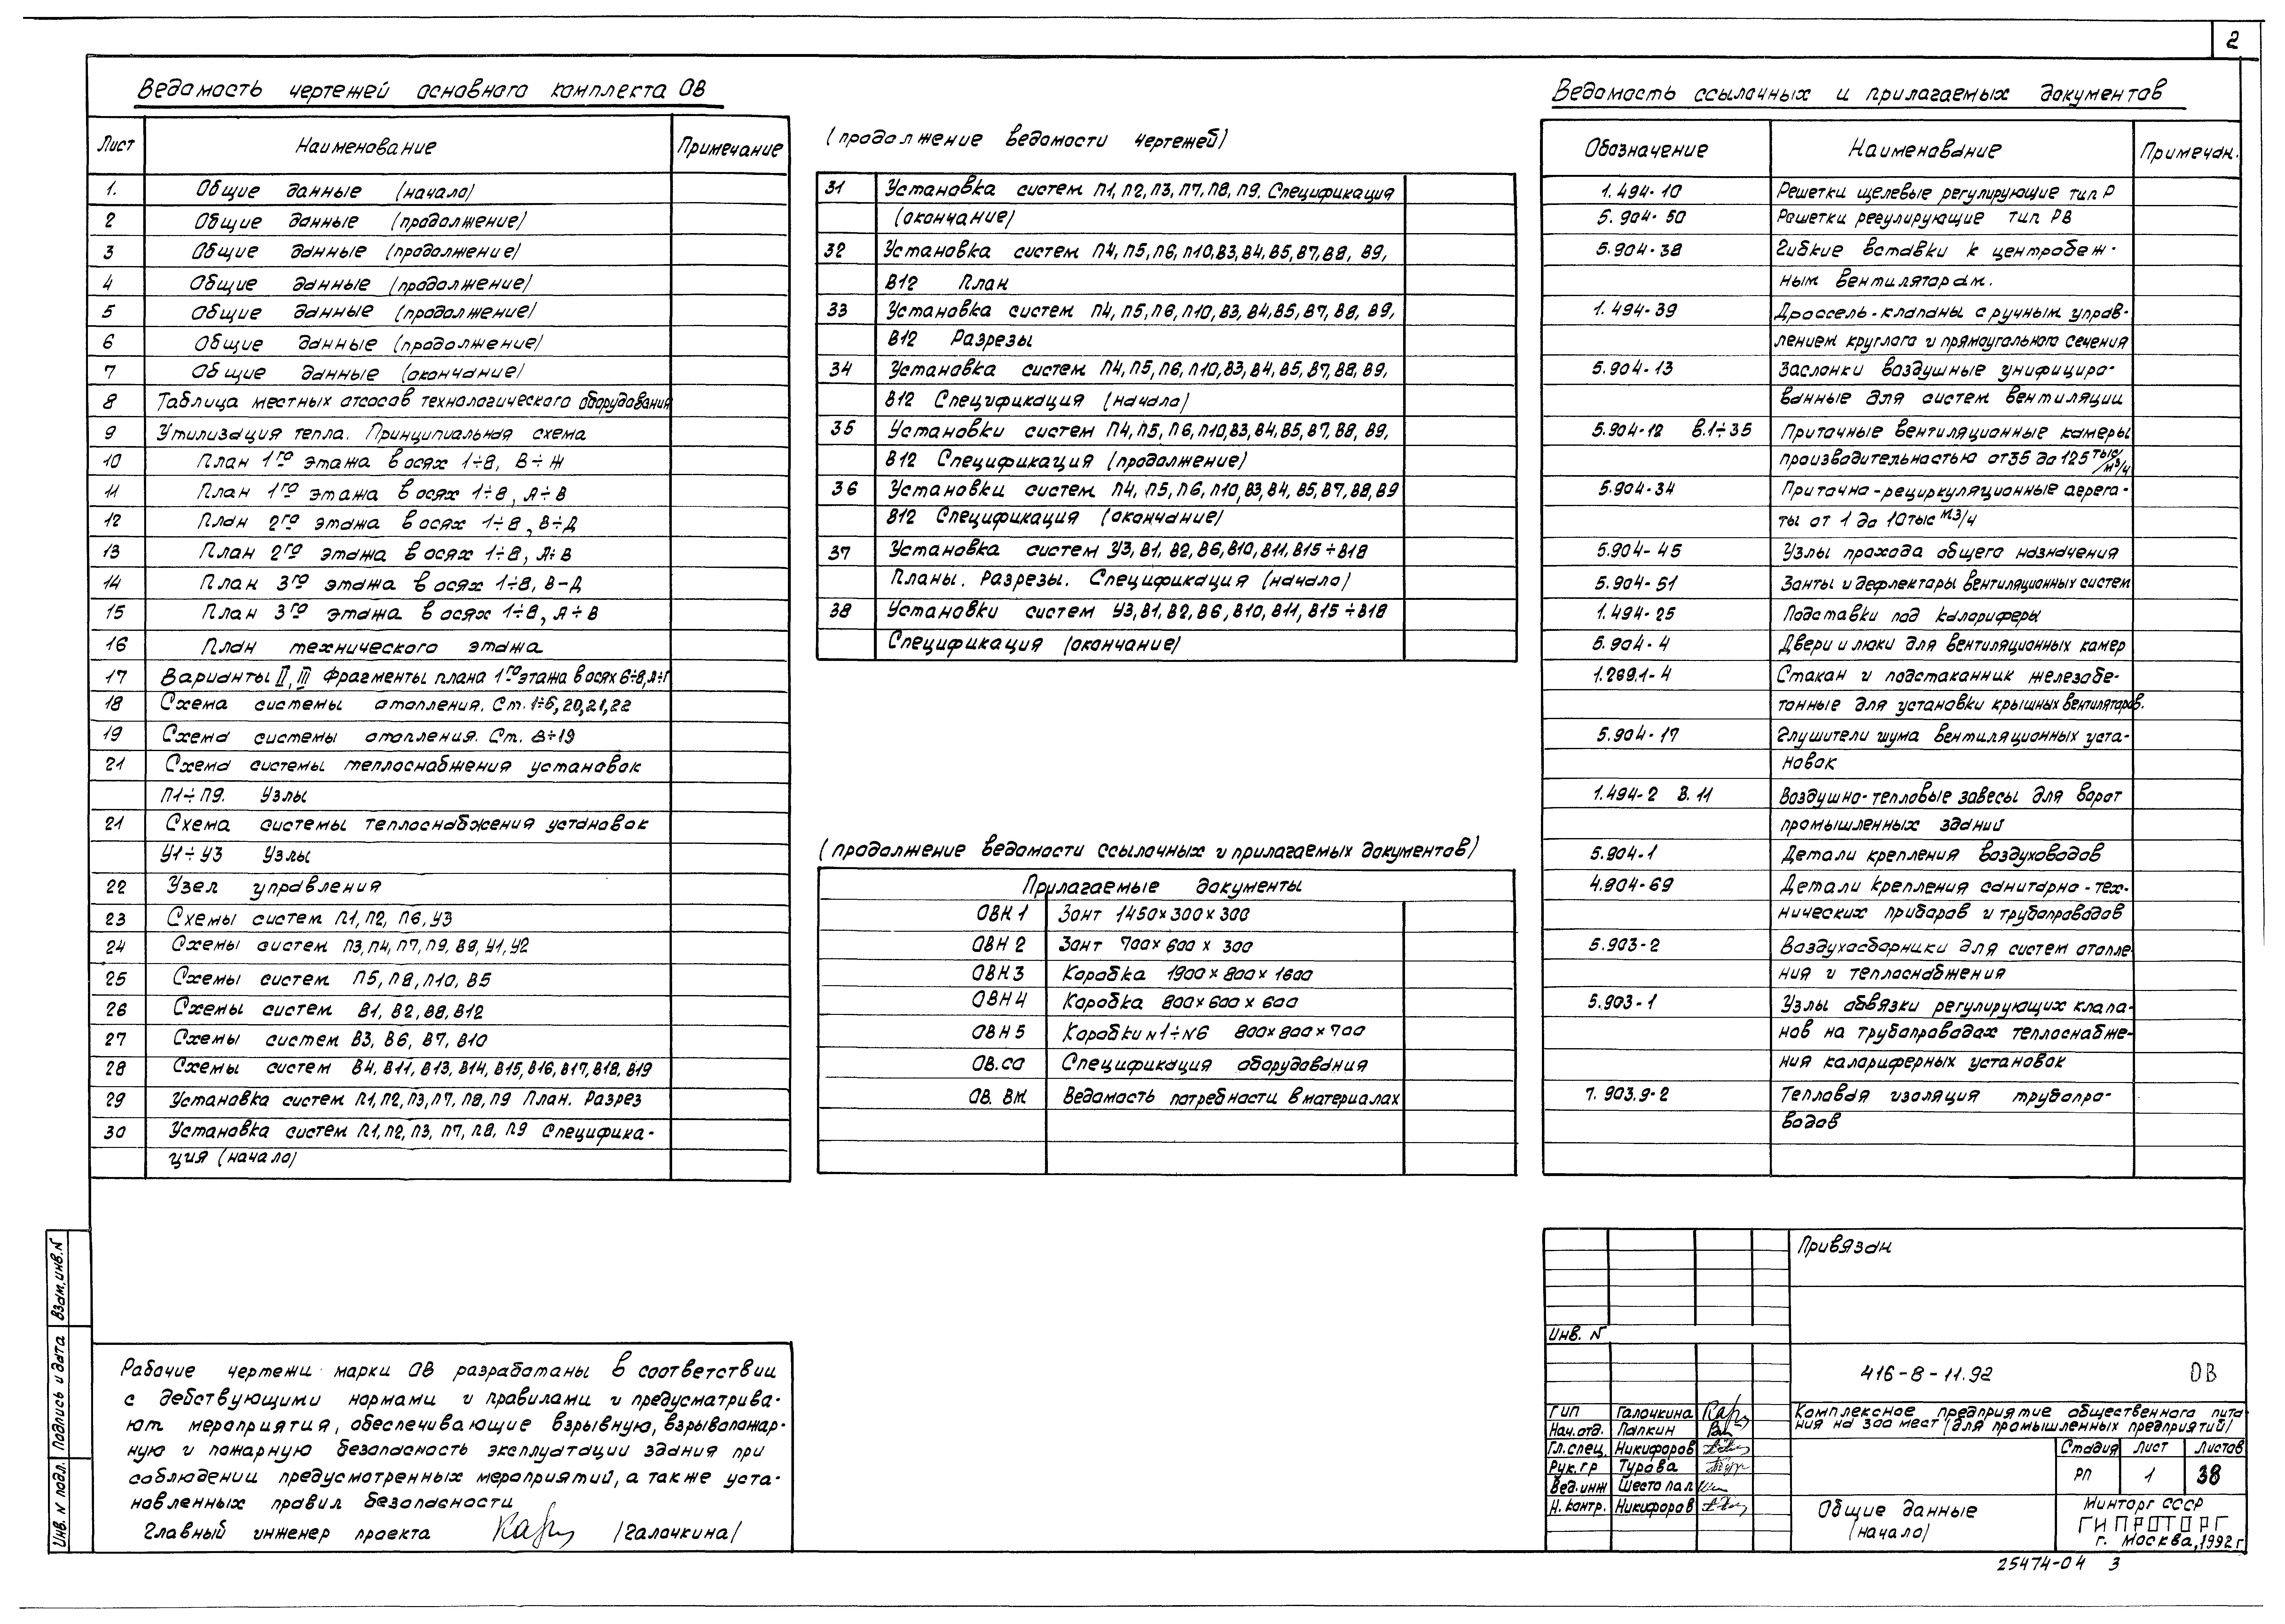 2
Ведомость чертежей основного комплекта ОВ
Лист Наименование Примечание
1. Общие данные (начало)
2 Общие данные (продолжение)
3 Общие данные (продолжение)
4 Общие данные (продолжение)
5 Общие данные (продолжение)
6 Общие данные (продолжение)
7 Общие данные (окончание)
8 Таблица местных отсосов технологического оборудования
9 Утилизация тепла. Принципиальная схема
10 План 1го этажа в осях 1÷8, В÷Ж
11 План 1го этажа в осях 1÷8, А÷В
12 План 2го этажа в осях 1÷8, В÷Д
13 План 2го этажа в осях 1÷8, А÷В
14 План 3го этажа в осях 1÷8, В-Д
15 План 3го этажа в осях 1÷8, А÷В
16 План технического этажа
17 Варианты II, III Фрагменты плана 1го этажа в осях 6÷8, А÷Г
18 Схема системы отопления. Ст. 1÷6, 20, 21, 22
19 Схема системы отопления. Ст. 8÷19
21 Схема системы теплоснабжения установок
П1÷П9. Узлы
21 Схема системы теплоснабжения установок
У1÷У3 Узлы
22 Узел управления
23 Схемы систем П1, П2, П6, У3
24 Схемы систем П3, П4, П7, П9, В9, У1, У2
25 Схемы систем П5, П8, П10, В5
26 Схемы систем В1, В2, В8, В12
27 Схемы систем В3, В6, В7, В10
28 Схемы систем В4, В11, В13, В14, В15, В16, В17, В18, В19
29 Установка систем П1, П2, П3, П7, П8, П9 План. Разрез
30 Установка систем П1, П2, П3, П7, П8, П9 Специфика-
ция (начало)
(продолжение ведомости чертежей)
31 Установка систем П1, П2, П3, П7, П8, П9. Спецификация
(окончание)
32 Установка систем П4, П5, П6, П10, В3, В4, В5, В7, В8, В9,
В12 План
33 Установка систем П4, П5, П6, П10, В3, В4, В5, В7, В8, В9,
В12 Разрезы
34 Установка систем П4, П5, П6, П10, В3, В4, В5, В7, В8, В9,
В12 Спецификация (начало)
35 Установки систем П4, П5, П6, П10, В3, В4, В5, В7, В8, В9,
В12 Спецификация (продолжение)
36 Установки систем П4, П5, П6, П10, В3, В4, В5, В7, В8, В9
В12 Спецификация (окончание)
37 Установка систем У3, В1, В2, В6, В10, В11, В15÷В18
Планы. Разрезы. Спецификация (начало)
38 Установки систем У3, В1, В2, В6, В10, В11, В15÷В18
Спецификация (окончание)
(продолжение ведомости ссылочных и прилагаемых документов)
Прилагаемые документы
ОВН 1 Зонт 1450×300×300
ОВН 2 Зонт 700×600×300
ОВН 3 Коробка 1900×800×1600
ОВН 4 Коробка 800×600×600
ОВН 5 Коробки N1÷N6 800×800×700
ОВ.СО Спецификация оборудования
ОВ. ВМ Ведомость потребности в материалах
Ведомость ссылочных и прилагаемых документов
Обозначение Наименование Примечан.
1.494-10 Решетки щелевые регулирующие тип Р
5.904-50 Решетки регулирующие тип РВ
5.904-38 Гибкие вставки к центробеж-
ным вентиляторам.
1.494-39 Дроссель-клапаны с ручным управ-
лением круглого и прямоугольного сечения
5.904-13 Заслонки воздушные унифициро-
ванные для систем вентиляции
5.904-12 в.1÷35 Приточные вентиляционные камеры
производительностью от 35 до 125 тыс м3/ч
5.904-34 Приточно-рециркуляционные агрега-
ты от 1 до 10 тыс м3/ч
5.904-45 Узлы прохода общего назначения
5.904-51 Зонты и дефлекторы вентиляционных систем
1.494-25 Подставки под калориферы
5.904-4 Двери и люки для вентиляционных камер
1.269.1-4 Стакан и подстаканник железобе-
тонные для установки крышных вентиляторов.
5.904-17 Глушители шума вентиляционных уста-
новок
1.494-2 В.11 Воздушно-тепловые завесы для ворот
промышленных зданий
5.904-1 Детали крепления воздуховодов
4.904-69 Детали крепления санитарно-тех-
нических приборов и трубопроводов
5.903-2 Воздухосборники для систем отопле
ния и теплоснабжения
5.903-1 Узлы обвязки регулирующих клапа-
нов на трубопроводах теплоснабже-
ния калориферных установок
7.903.9-2 Тепловая изоляция трубопро-
водов
Рабочие чертежи марки ОВ разработаны в соответствии
с действующими нормами и правилами и предусматрива-
ют мероприятия, обеспечивающие взрывную, взрывопожар-
ную и пожарную безопасность эксплуатации здания при
соблюдении предусмотренных мероприятий, а также уста-
новленных правил безопасности
Главный инженер проекта /Галочкина/
Инв. N подл. Подпись и дата Взам. инв. N
Привязан
Инв. N
416-8-11.92 ОВ
Комплексное предприятие общественного пита
ния на 300 мест (для промышленных предприятий)
ГИП Галочкина
Нач. отд. Папкин
Гл. спец. Никифоров
Рук. гр Турова
Вед. инж Шестопал
Н. контр. Никифоров
Стадия Лист Листов
РП 1 38
Общие данные
(начало)
Минторг СССР
ГИПРОТОРГ
г. Москва, 1992 г
25474-04 3